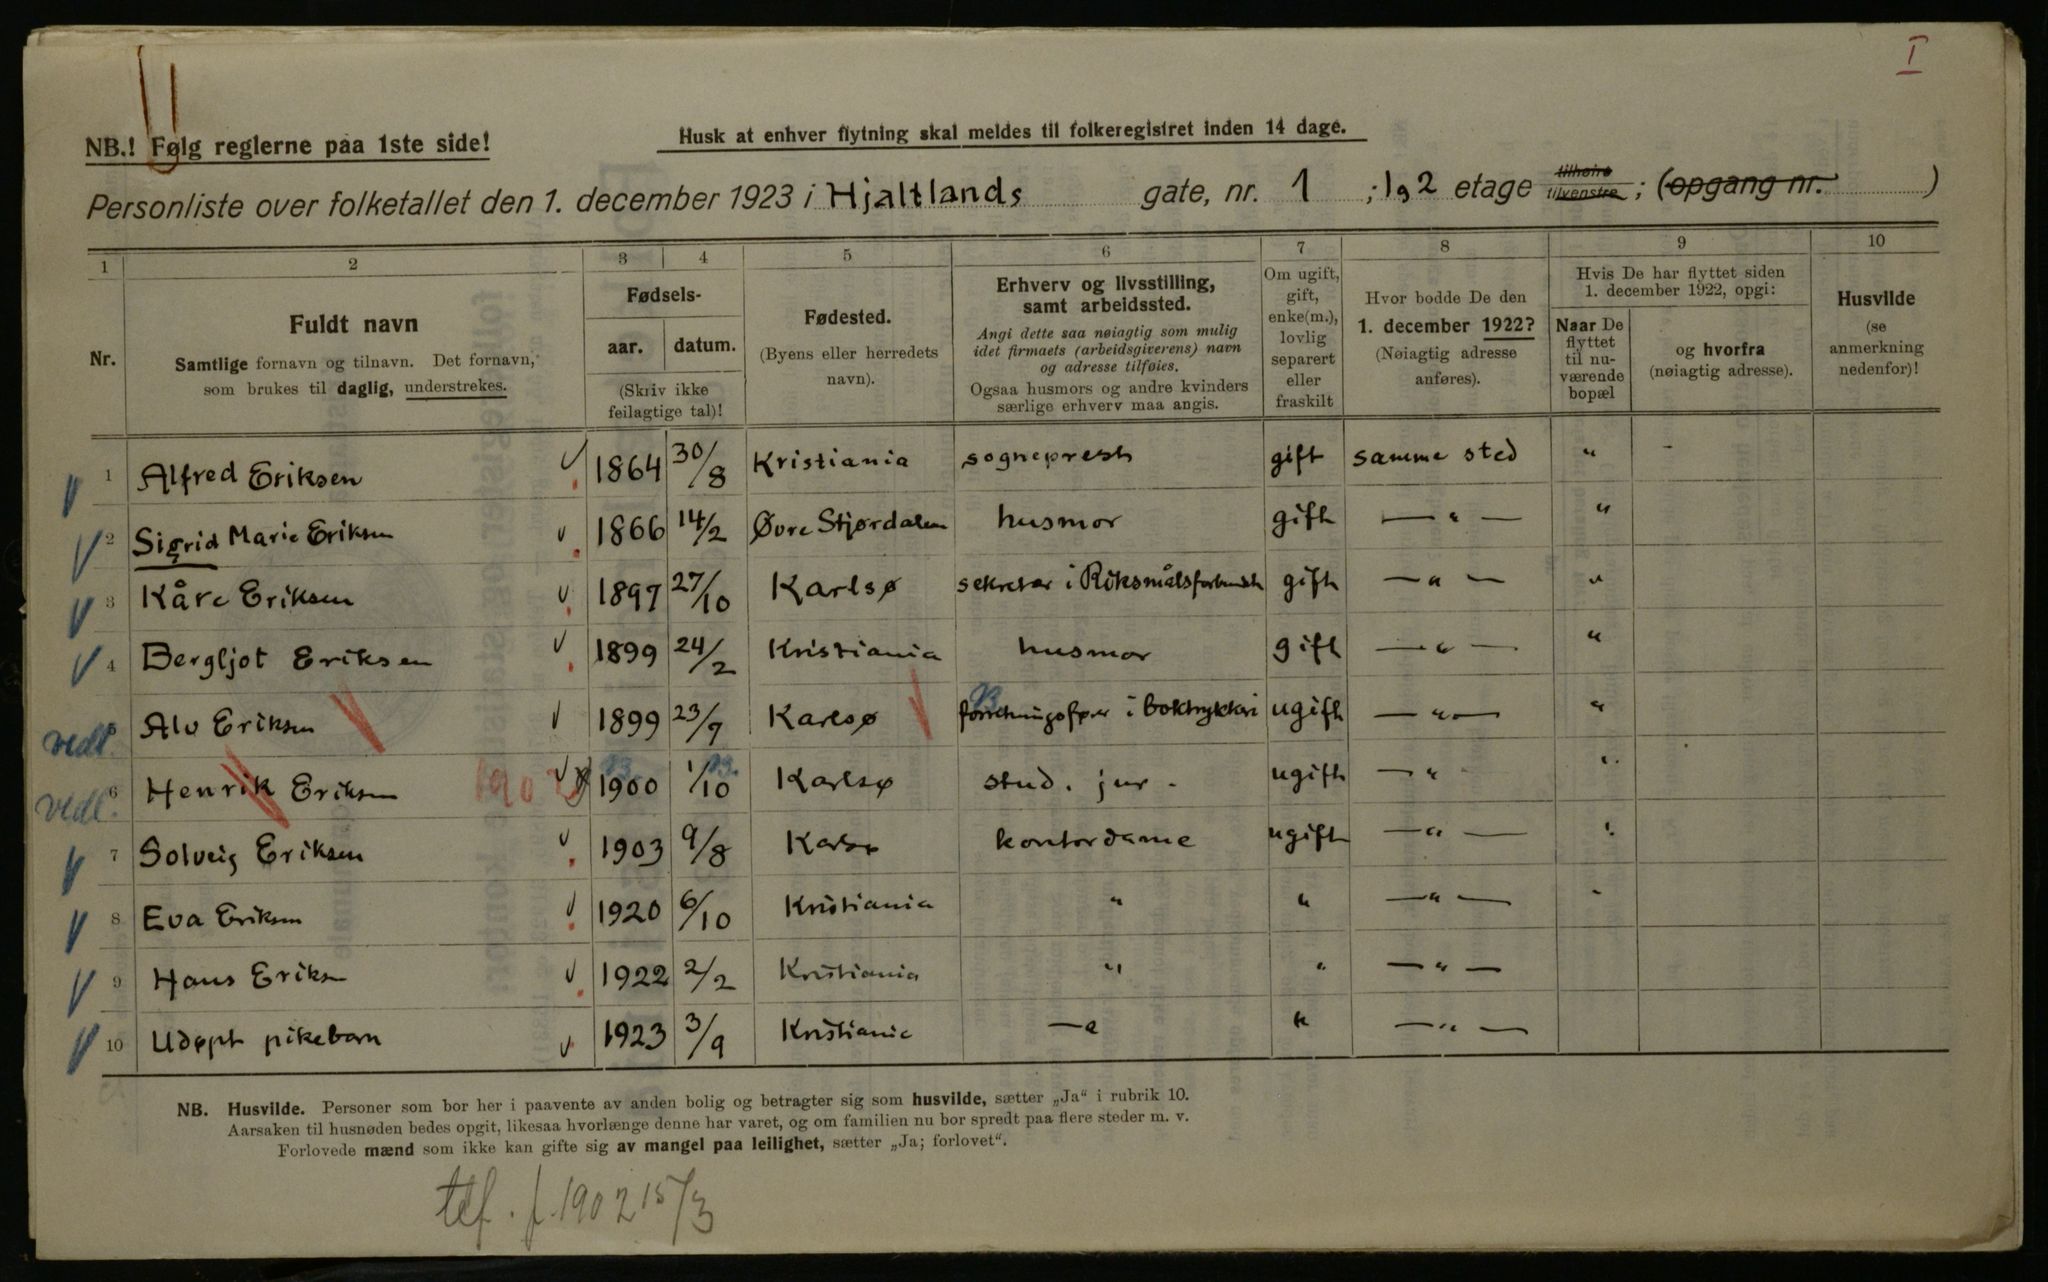 I
NB.! Følg reglerne paa 1ste side!
Husk at enhver flytning skal meldes til folkeregistret inden 14 dage.
Personliste over folketallet den 1. december 1923 i Hjaltlands gate, nr. 1 ; 1 og 2 etage tilhøire tilvenstre ; (opgang nr. )
1 2 3 4 5 6 7 8 9 10
Nr.
Fuldt navn
Samtlige fornavn og tilnavn. Det fornavn,
som brukes til daglig, understrekes.
Fødsels-
aar. datum.
(Skriv ikke
feilagtige tal)!
Fødested.
(Byens eller herredets
navn).
Erhverv og livsstilling,
samt arbeidssted.
Angi dette saa nøiagtig som mulig
idet firmaets (arbeidsgiverens) navn
og adresse tilføies.
Ogsaa husmors og andre kvinders
særlige erhverv maa angis.
Om ugift,
gift,
enke(m.),
lovlig
separert
eller
fraskilt
Hvor bodde De den
1. december 1922?
(Nøiagtig adresse
anføres).
Hvis De har flyttet siden
1. december 1922, opgi:
Naar De
flyttet
til nu-
værende
bopæl
og hvorfra
(nøiagtig adresse).
Husvilde
(se
anmerkning
nedenfor)!
1 Alfred Eriksen 1864 30/8 Kristiania sogneprest gift samme sted " -
2 Sigrid Marie Eriksen 1866 14/2 Øvre Stjørdalen husmor gift — " — "
3 Kåre Eriksen 1897 27/10 Karlsø sekretær i Riksmålsforbundet gift — " — "
4 Bergljot Eriksen 1899 24/2 Kristiania husmor gift — " — "
vedl. 5 Alv Eriksen 1899 23/9 Karlsø forretningsfører i boktrykkeri ugift — " — "
vedl. 6 Henrik Eriksen 1902 1900 1/10 Karlsø stud. jur. ugift — " "
7 Solveig Eriksen 1903 9/8 Karlsø kontordame ugift — " — "
8 Eva Eriksen 1920 6/10 Kristiania " " — " — "
9 Hans Eriksen 1922 2/2 Kristiania " " — " —
10 Udøpt pikebarn 1923 3/9 Kristiania — " " — " —
NB. Husvilde. Personer som bor her i paavente av anden bolig og betragter sig som husvilde, sætter „Ja“ i rubrik 10.
Aarsaken til husnøden bedes opgit, likesaa hvorlænge denne har varet, og om familien nu bor spredt paa flere steder m. v.
Forlovede mænd som ikke kan gifte sig av mangel paa leilighet, sætter „Ja; forlovet“.
tlf. f. 1902 15/3